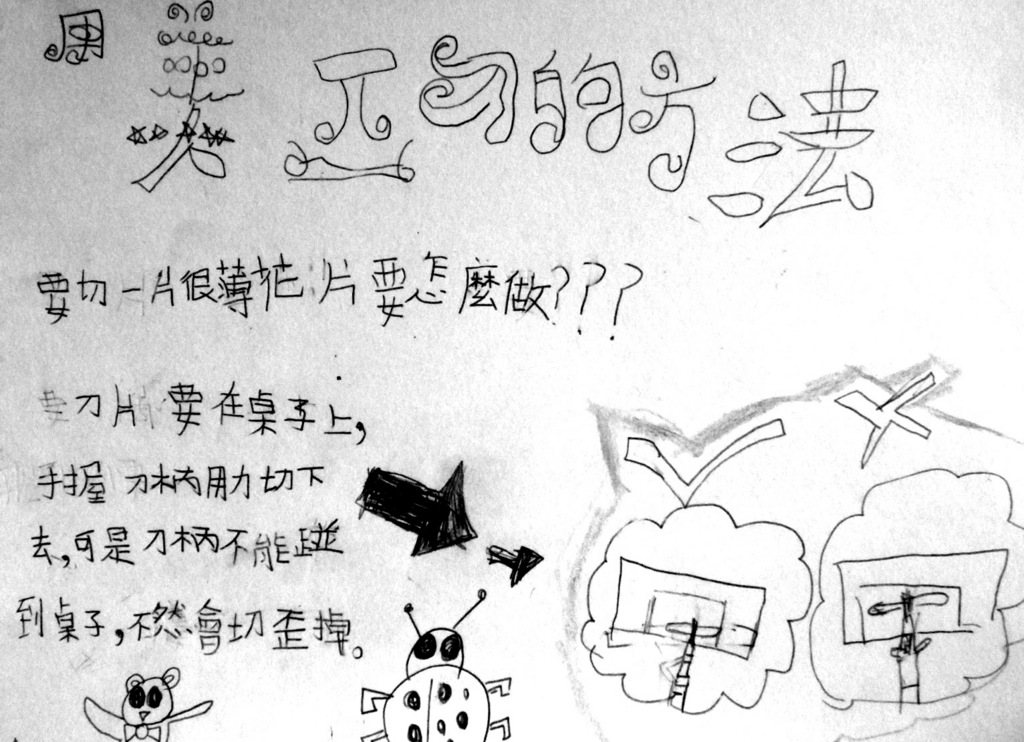 切的方法
要切一片很薄花片要怎麼做???
刀片要在桌子上,
手握刀柄用力切下
去,可是刀柄不能碰
到桌子,不然會切歪掉。